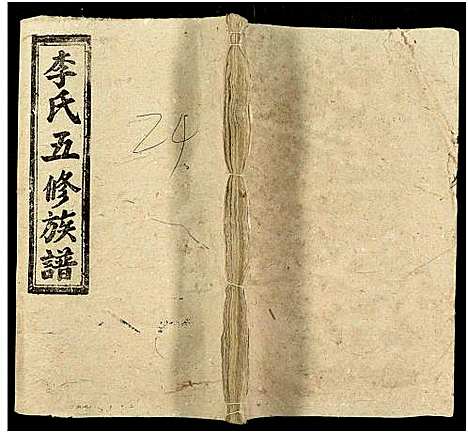 李氏五修族譜
24